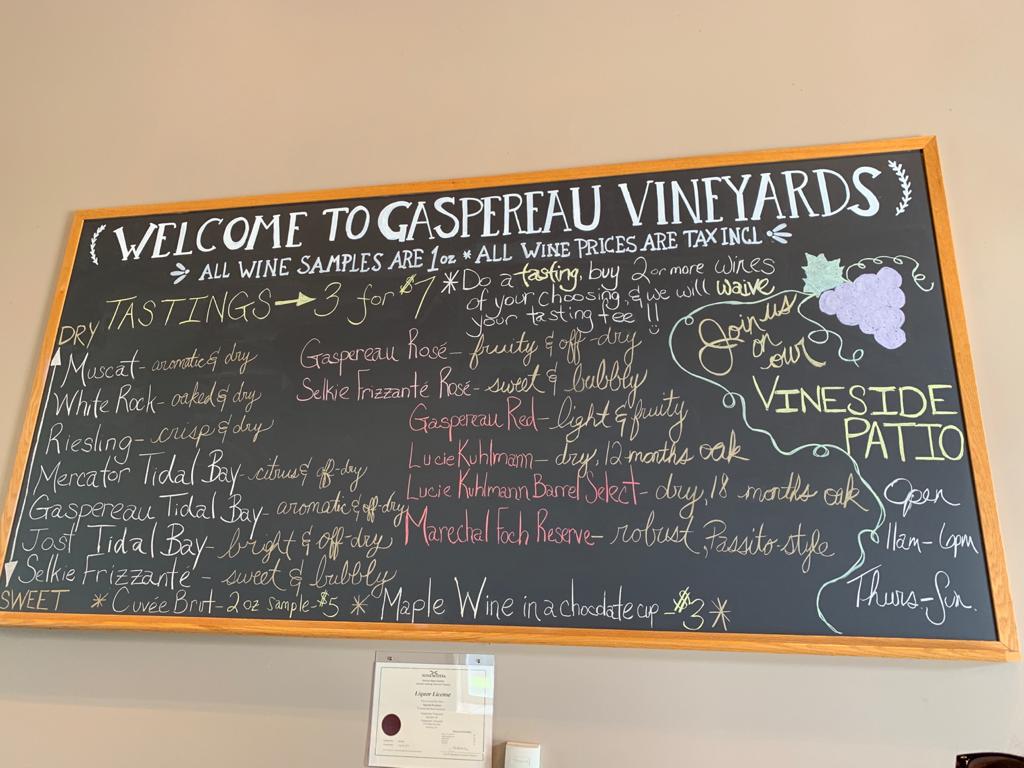 WELCOME TO GASPEREAU VINEYARDS
ALL WINE SAMPLES ARE 1oz * ALL WINE PRICES ARE TAX INCL
TASTINGS → 3 for $7
*Do a tasting, buy 2 or more wines
of your choosing, & we will waive
your tasting fee!!
DRY
Muscat - aromatic & dry
White Rock - oaked & dry
Riesling - crisp & dry
Mercator Tidal Bay - citrus & off-dry
Gaspereau Tidal Bay - aromatic & off-dry
Jost Tidal Bay - bright & off-dry
Selkie Frizzanté - sweet & bubbly
SWEET
Gaspereau Rosé - fruity & off-dry
Selkie Frizzanté Rosé - sweet & bubbly
Gaspereau Red - light & fruity
Lucie Kuhlmann - dry, 12 months oak
Lucie Kuhlmann Barrel Select - dry, 18 months oak
Marechal Foch Reserve - robust, Passito-style
* Cuvée Brut - 2 oz sample - $5 * Maple Wine in a chocolate cup - $3 *
Join us
on
our
VINESIDE
PATIO
Open
11am - 6pm
Thurs - Sun.
Liquor License